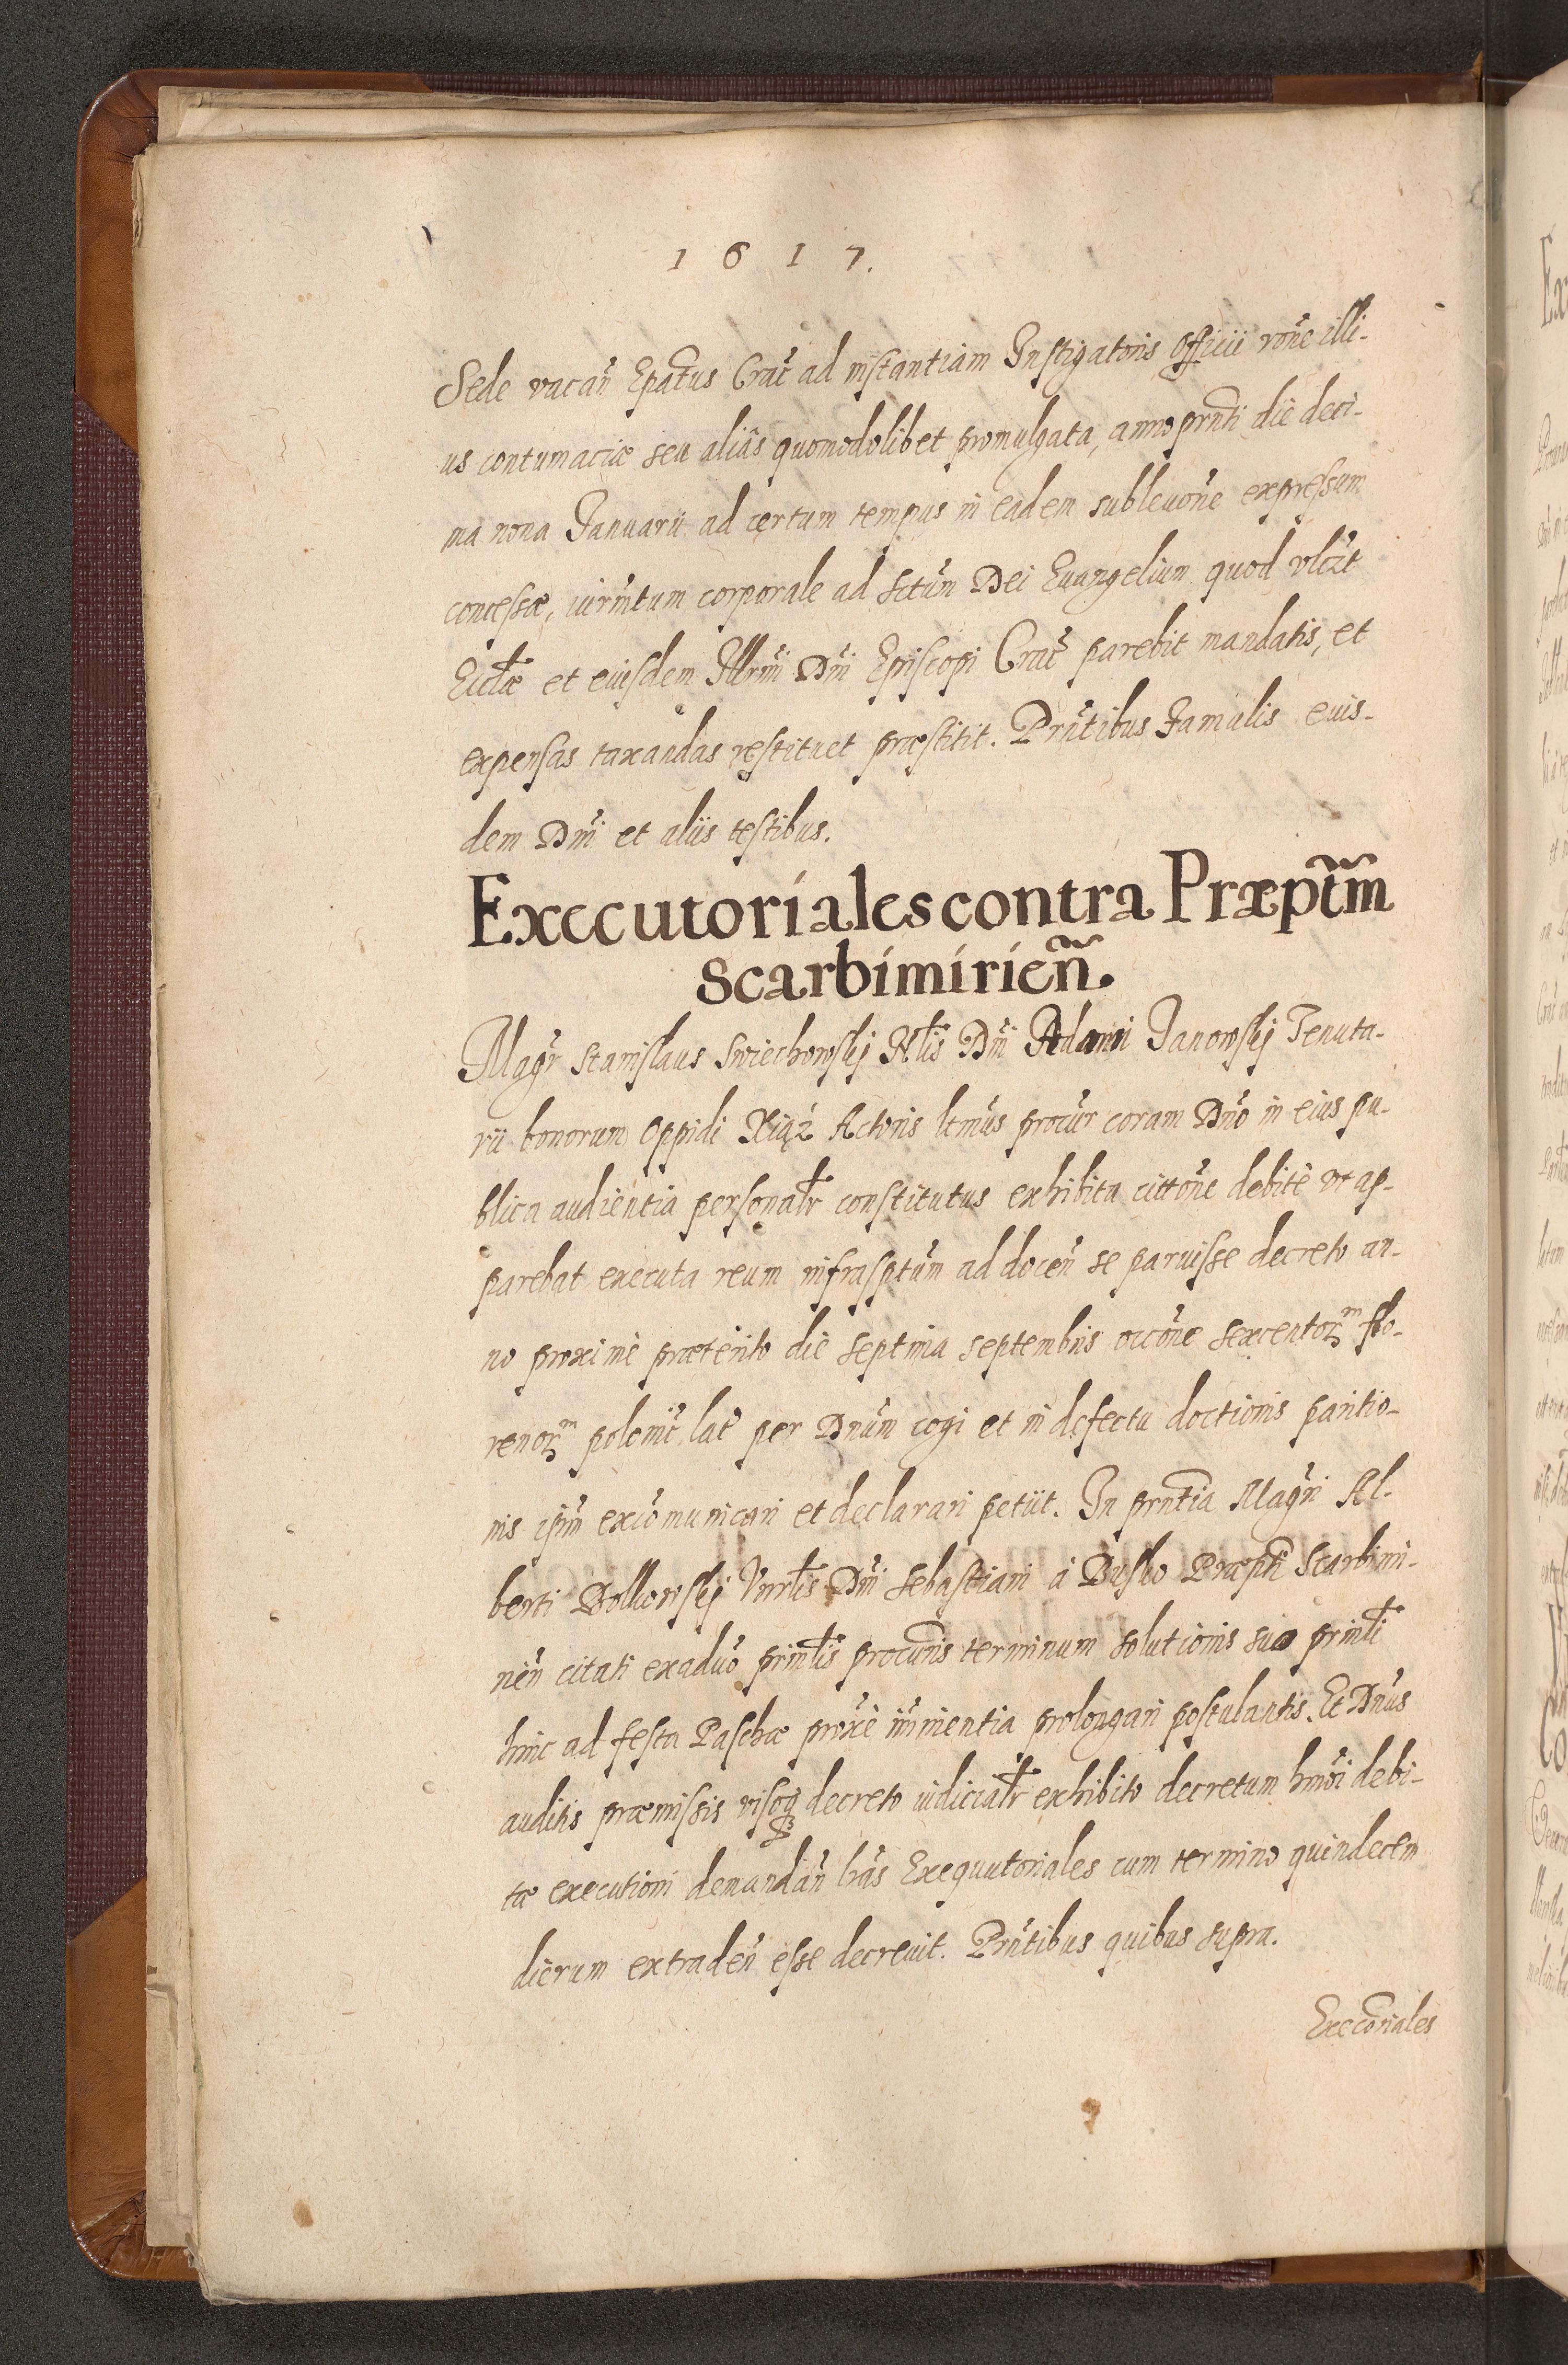 1617.
Sede vacañ Epatus Crac̃ ad instantiam Instigatoris Officii rõne illi-
us contumaciæ seu aliâs quomodolibet promulgata, anno prñti die deci-
ma nona Januarii ad certum tempus in eadem subleuoñe expressum
concessæ, iurm̃tum corporale ad sctũm Dei Euangelium quod
Ecclæ et eiusdem Illrmi Dñi Episcopi Crac̃ parebit mandatis, et
expensas taxandas restituet præstitit. Prñtibus Famulis eius-
dem Dñi et aliis testibus.
Executoriales contra Præptm̃
Scarbimirień.
Magr̃ Stanislaus Swiechowskj Nlis Dñi Adami Janowskj Tenuta-
rii bonorum oppidi Xiąż Actoris ltmũs procur̃ coram Dño in eius pu-
blica audientia personalr̃ constitutus exhibita cittoñe debitè vt ap-
parebat executa reum infrasptũm ad doceñ se paruisse decreto an-
no proximè præterito die septima septembris occoñe sexcentorm flo-
renorm poloniĉ lat̃ per Dnũm cogi et in defectu doctionis paritio-
nis ipm̃ excõmunicari et declarari petiit. In prñtia Magri Al-
berti Dolkowskj Vnrlis Dñi Sebastiani à Busko Præpti Scarbimi-
rieñ citati ex aduõ prinlis procuris terminum solutionis suo prinli
hinc ad festa Paschæ proxè im̃inentia prolongari postulantis. Et Dñus
auditis præmissis visoq decreto iudicialr̃ exhibito decretum hmõi debi-
tæ executioni demandañ lrãs Exequutoriales cum termino quindecem
dierum extradeñ esse decreuit. Prñtibus quibus supra.
Execoriales